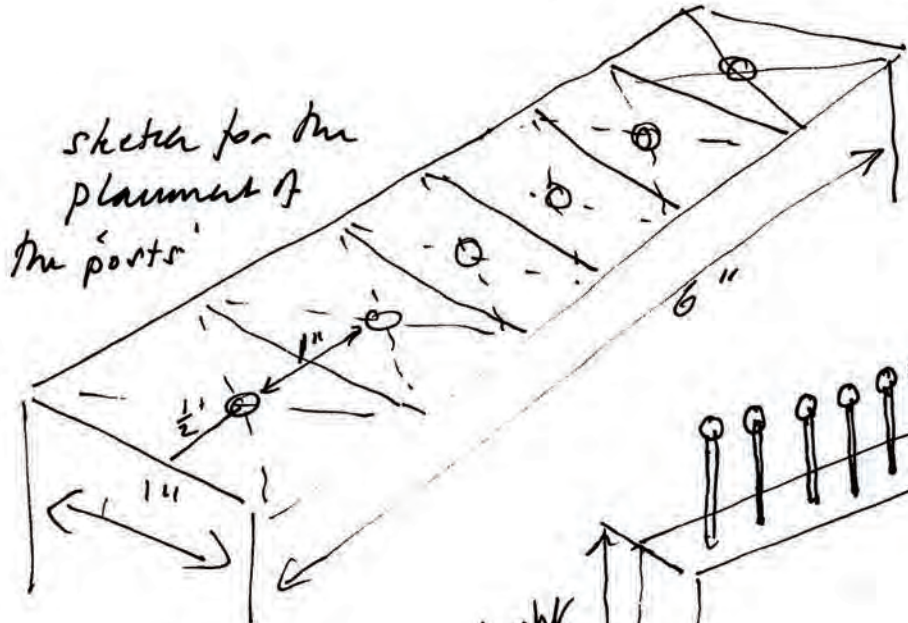 sketch for the
placement of
the 'posts'
1"
½"
1"
6"